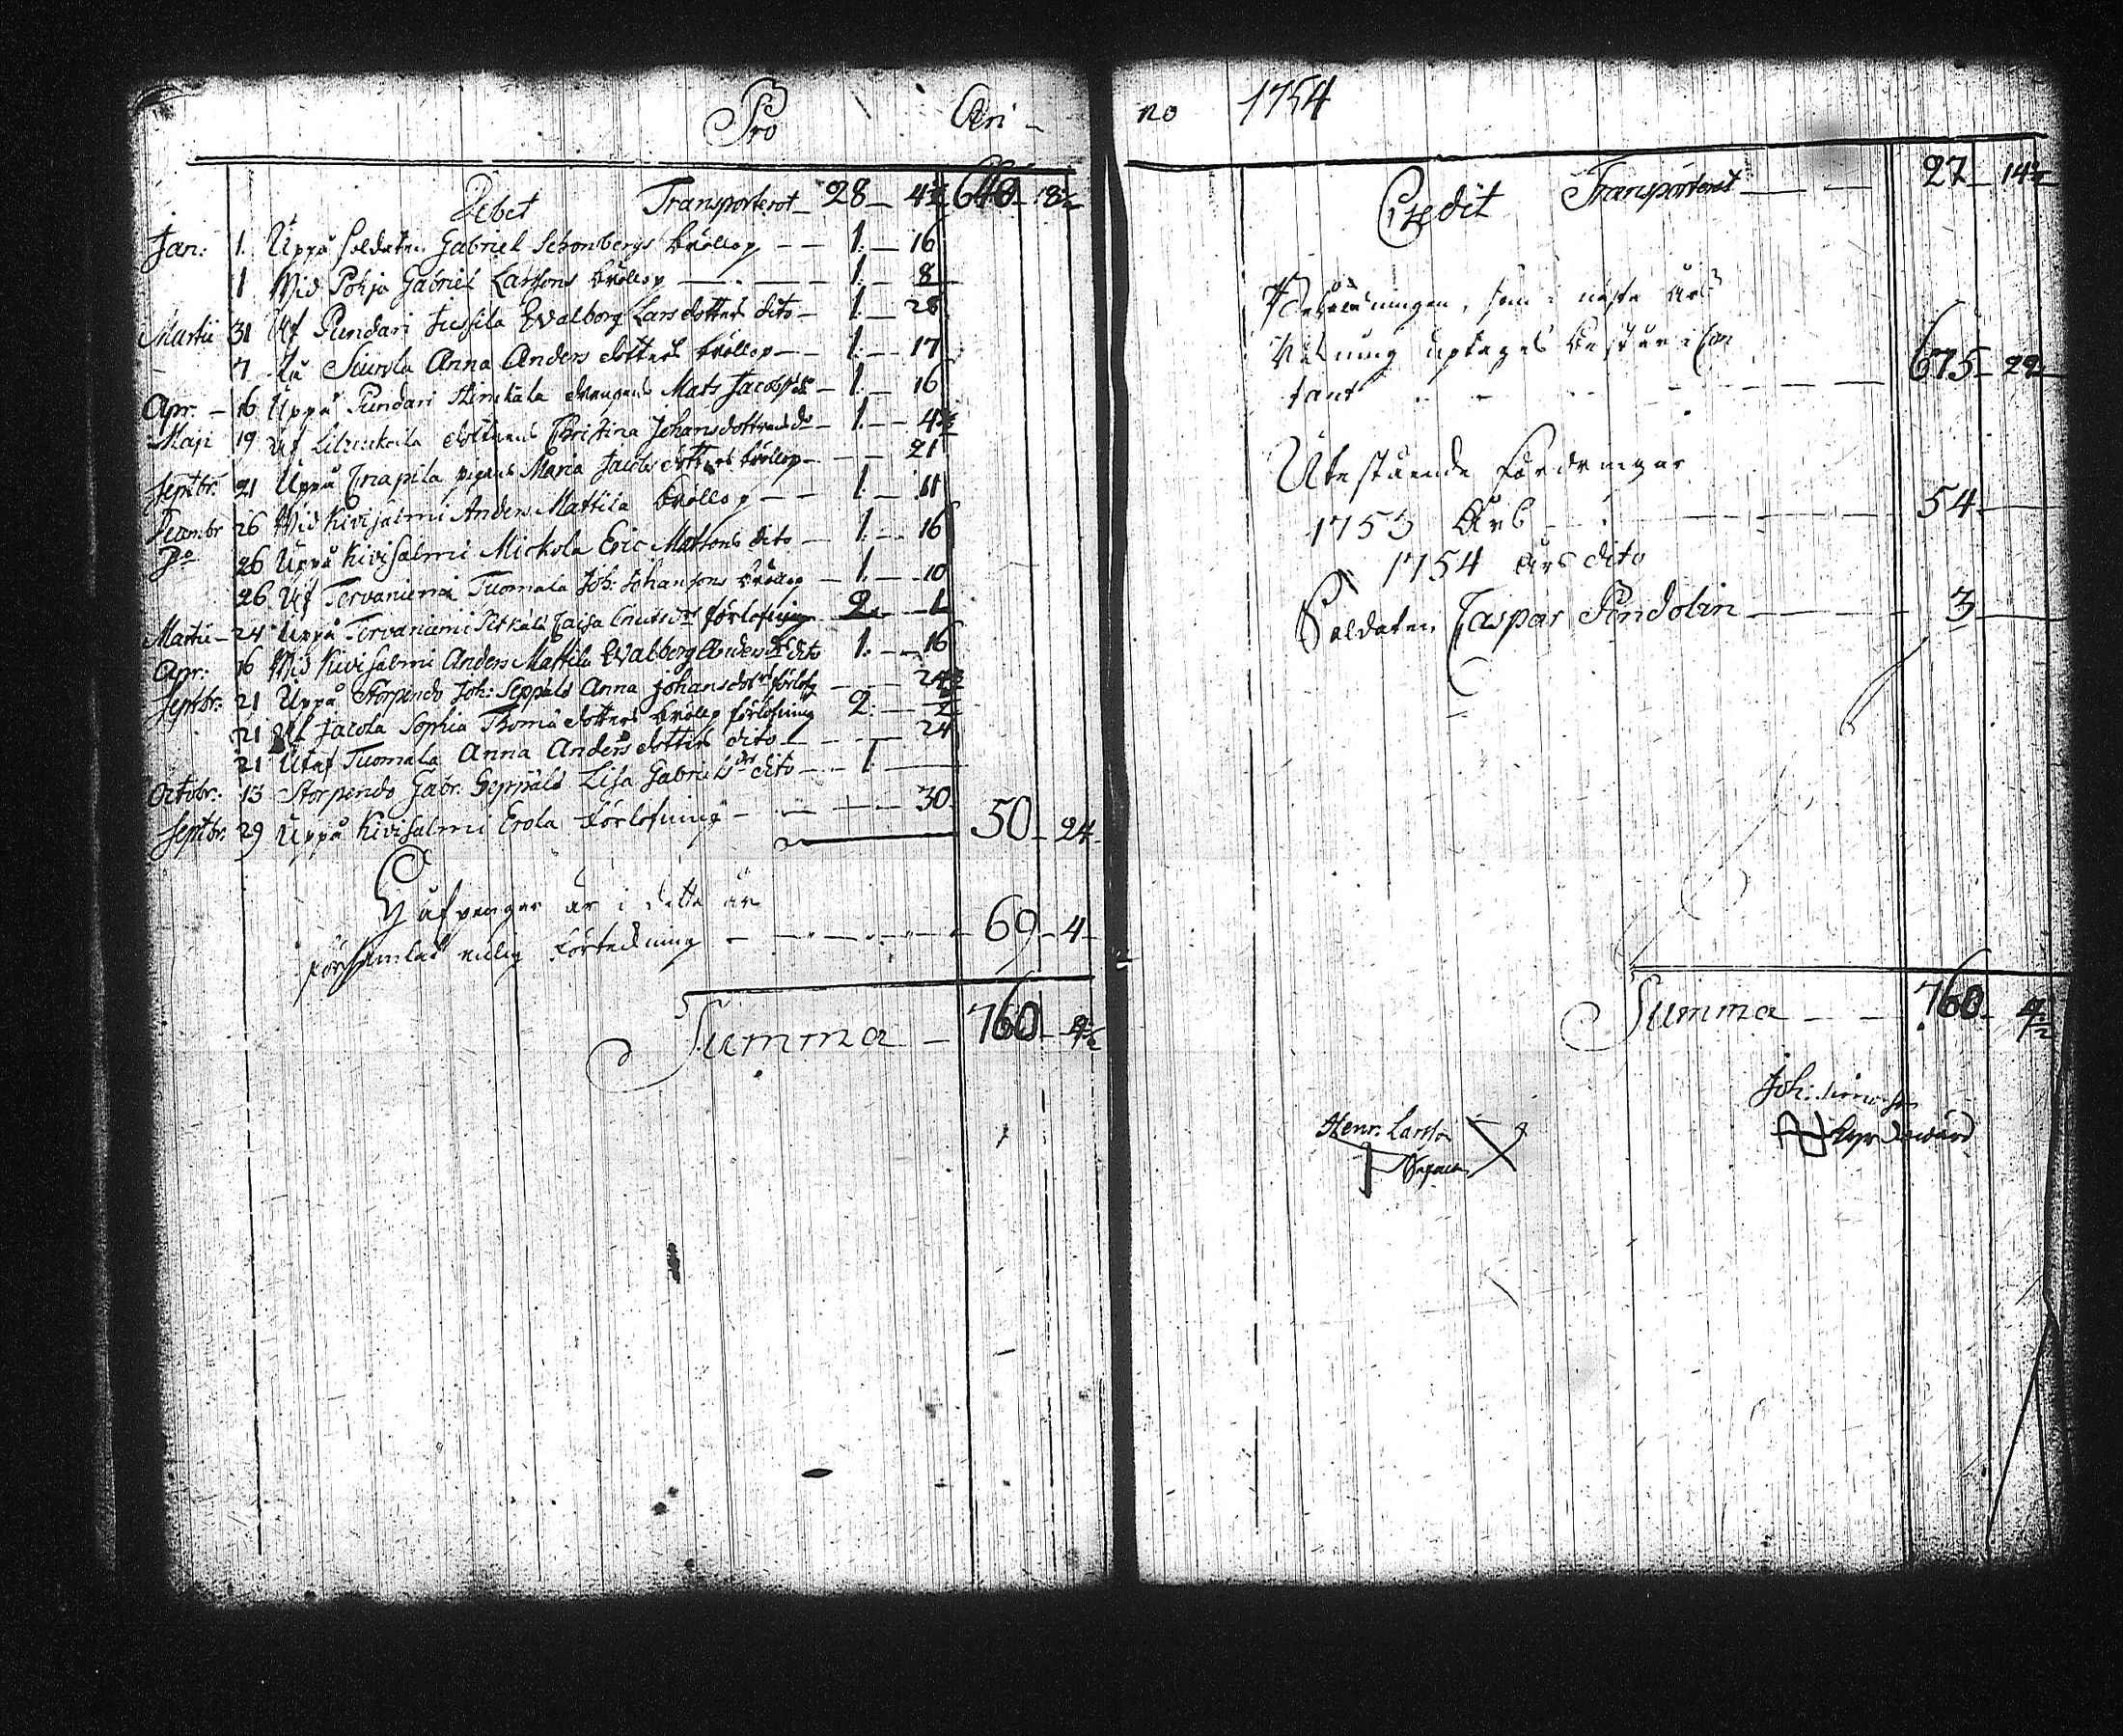 Pro An-
Debet Transporterat 28 4½ 640 8½
Jan: 1. Uppå Soldaten Gabriel Schonbergs bröllop 1. 16
1 Wid Pohja Gabriel Larssons bröllop 1. 8
Martii 31 Uf Pundari Jussila Walborg Larsdotters dito 1. 28
7 Anna Anders dotters bröllop 1. 17
Apr. 16 Uppå Pundari drengens Mats Jacobs 1. 16
Maji 19 Uf dotterens Christina Johansdotters do 1. 4½
Septbr. 21 Uppå Cnapila pigans Maria Jacobs dotters bröllop 21
Decembr 26 Wid Kivisalmi Anders Mattila bröllop 1. 11
Do 26 Uppå Kivisalmi Mickola Eric Matsons dito 1. 16
26 Uf Tervaniemi Tuomala Joh: Johansons bröllop 1. 10
Martii 24 Uppå Tervaniemi Caisa förlofning 2. 1
Apr: 16 Wid Kivisalmi Anders Mattila Walborg Anders dr dito 1. 16
Septbr: 21 Uppå Storpendo Joh: Seppälä Anna Johansdotters förlofg 24
21 Uf Jacola Sophia Thomæ dotters bröllop förlofning 2.
21 Utaf Tuomala Anna Anders dotters dito 24
Octobr: 13 Storpendo Gabr. Seppälä Lisa Gabriels drs dito 1.
Septbr. 29 Uppå Kivisalmi Erola förlofning 30.
50 24
Håfpengar är i detta år
församlat enlig förteckning 69 4
Summa 760 4½
no 1754
Credit Transporterat 27 14½
Behållningen, som i nästa års
Räkning uptages består i Con
tant 675 22
Utestående fordringar
1753 Års 54
1754 års dito
Soldaten Caspar Pindolin 3
Summa 760 4½
Henr. Larsson
Joh: Simonson
Kyrckowärd